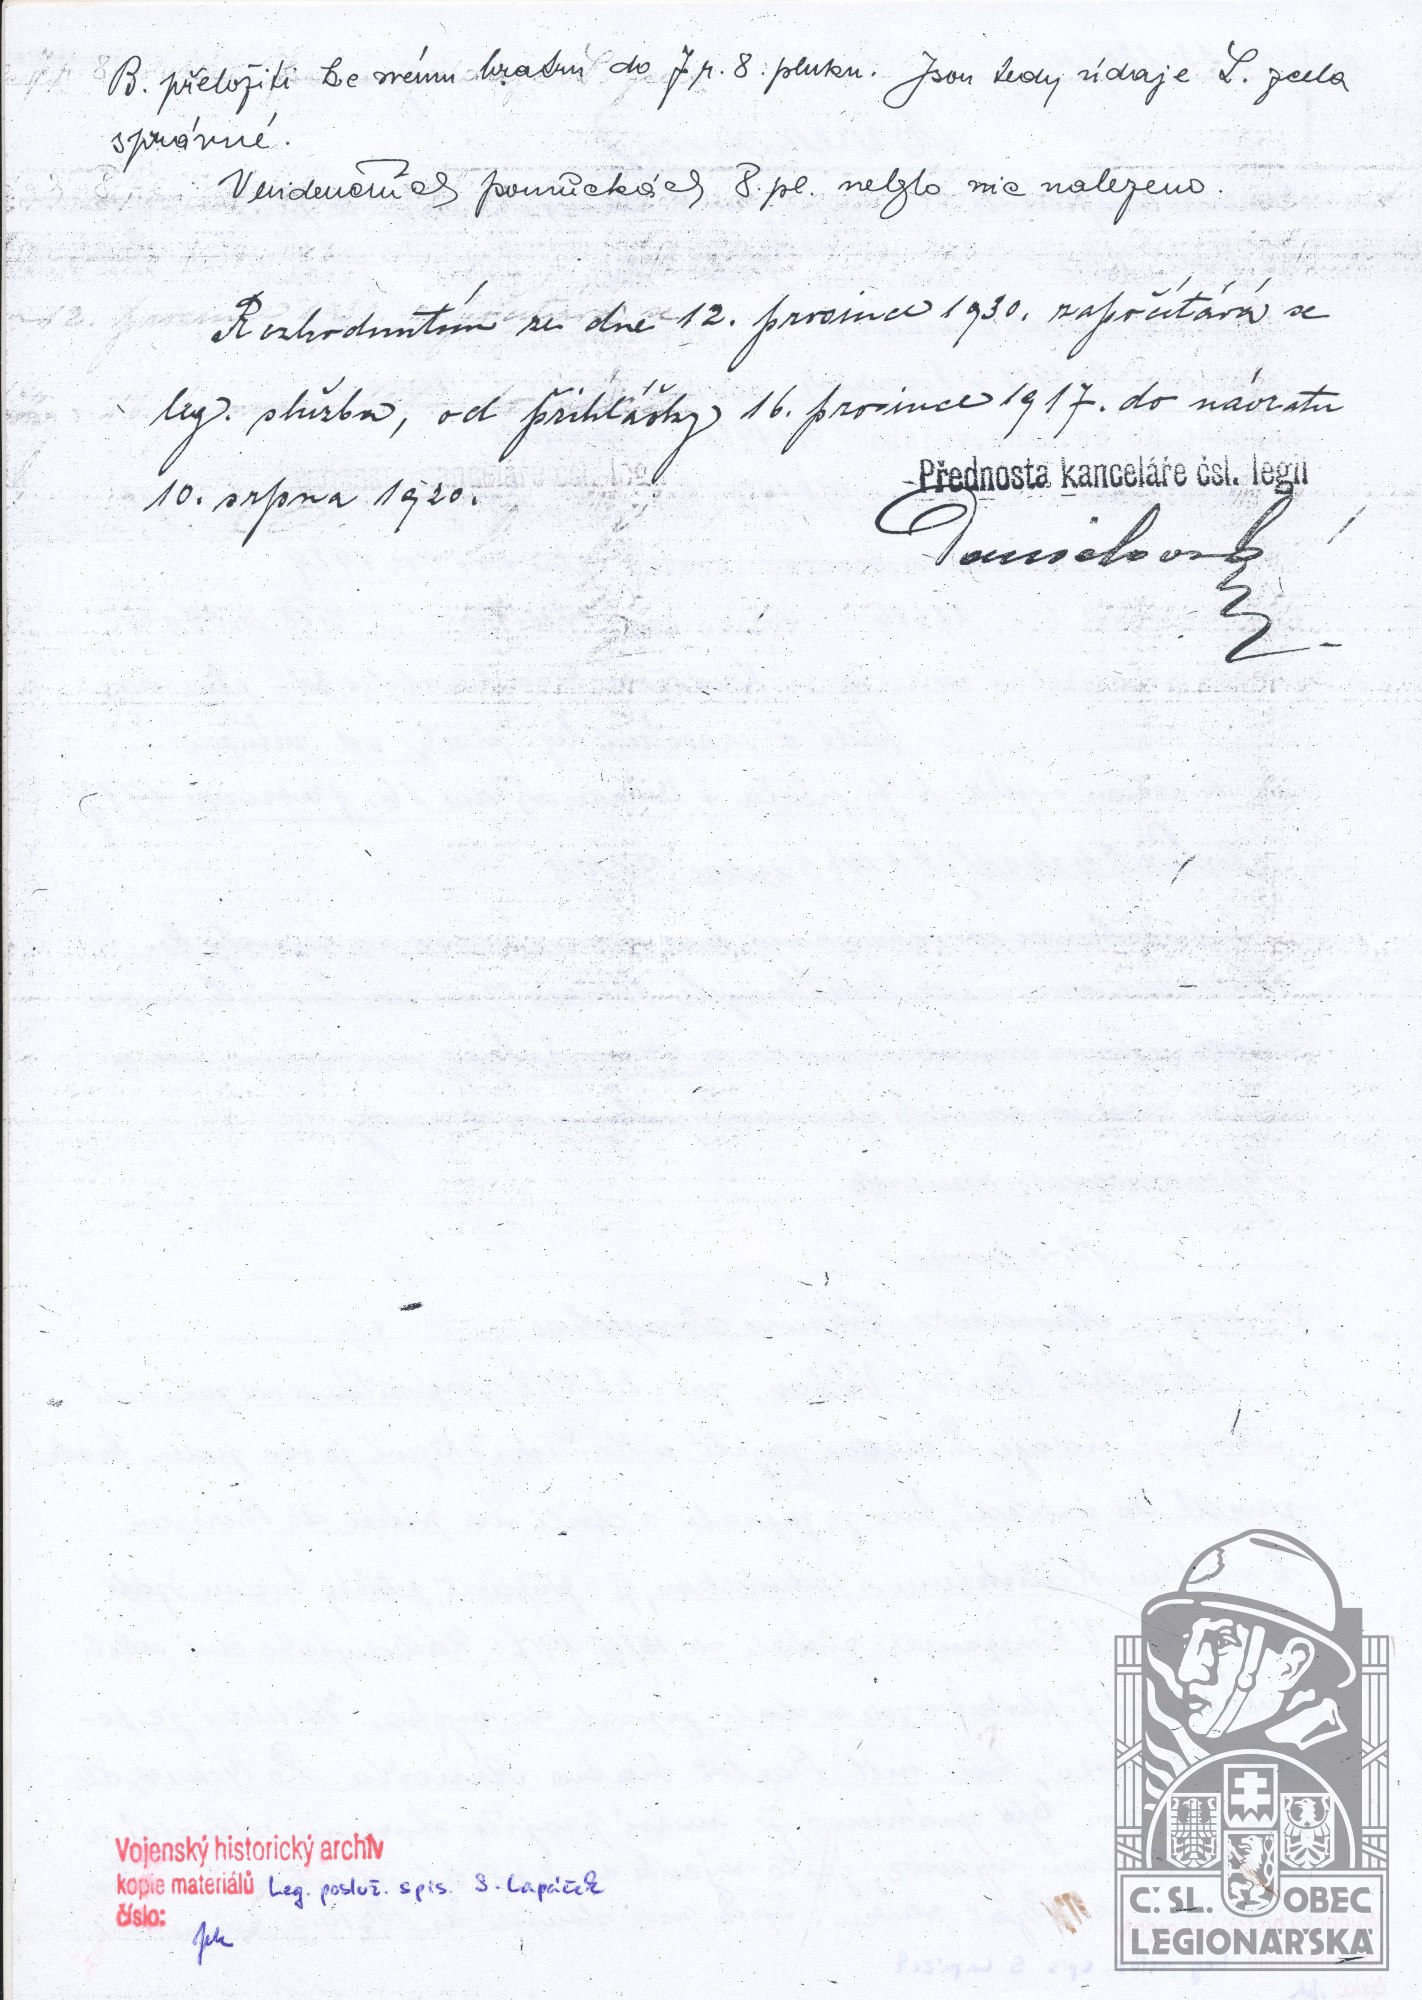 B. přeložiti ke svému bratru do 7 r. 8. pluku. Jsou tedy údaje L. zcela
správné.
V evidenčních pomůckách 8. pl. nelzlo nic nalezeno.
Rozhodnutím ze dne 12. prosince 1930. započítává se
leg. služba, od přihlášky 16. prosince 1917. do návratu
10. srpna 1920.
Přednosta kanceláře čsl. legií
Vojenský historický archiv
kopie materiálů Leg. posluž. spis. S. Lapáček
číslo:
Č.SL. OBEC
LEGIONÁŘSKÁ